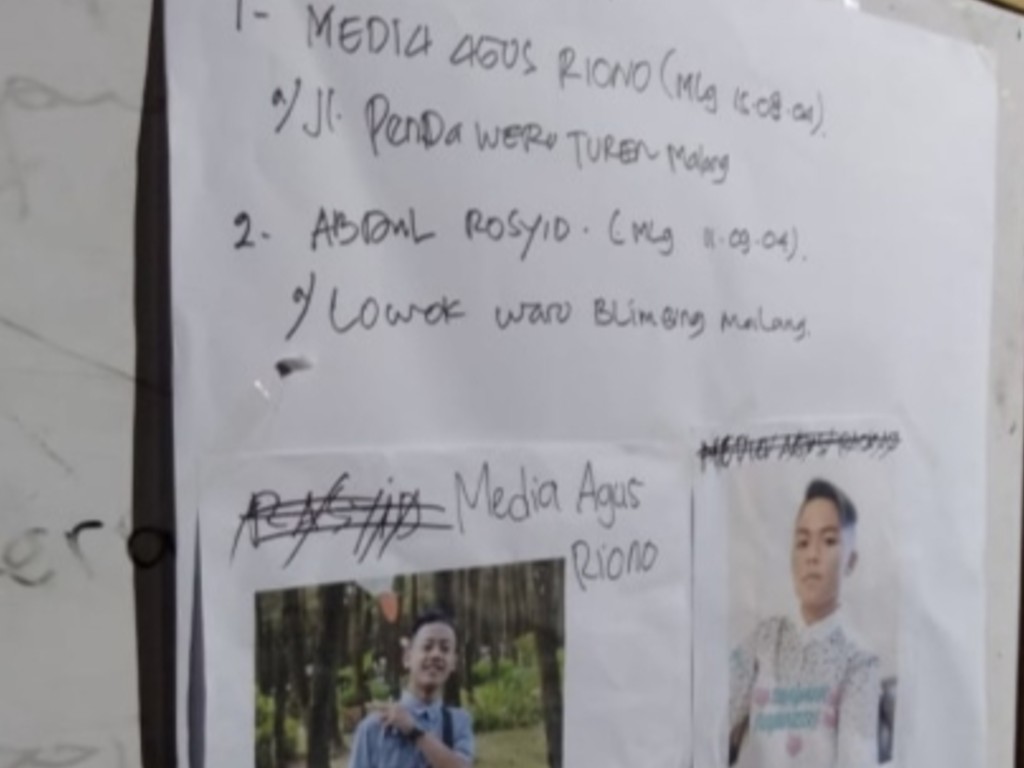 1- MEDIA AGUS RIONO (Mlg 15.08.04).
a/ Jl. PenDa WERU TUREN Malang
2- ABDUL ROSYID. (Mlg 11.09.04).
a/ Lowok waru BLimBing Malang.
Media Agus
Riono